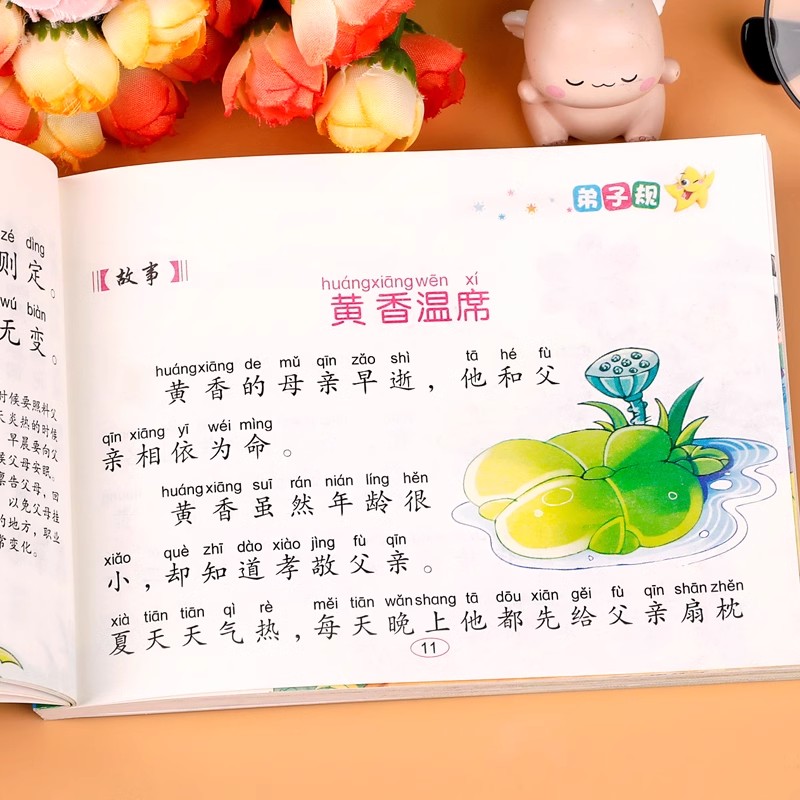 zé dìng
则定。
wú biàn
无变。
时候要照料父
天炎热的时候
早晨要向父
候父母安眠。
禀告父母,回
以免父母挂
的地方,职业
常变化。
弟子规
【故事】
huángxiāngwēn xí
黄香温席
huángxiāng de mǔ qīn zǎo shì tā hé fù
黄香的母亲早逝,他和父
qīn xiāng yī wéi mìng
亲相依为命。
huángxiāng suī rán nián líng hěn
黄香虽然年龄很
xiǎo què zhī dào xiào jìng fù qīn
小,却知道孝敬父亲。
xià tiān tiān qì rè měi tiān wǎnshang tā dōu xiān gěi fù qīn shānzhěn
夏天天气热,每天晚上他都先给父亲扇枕
11